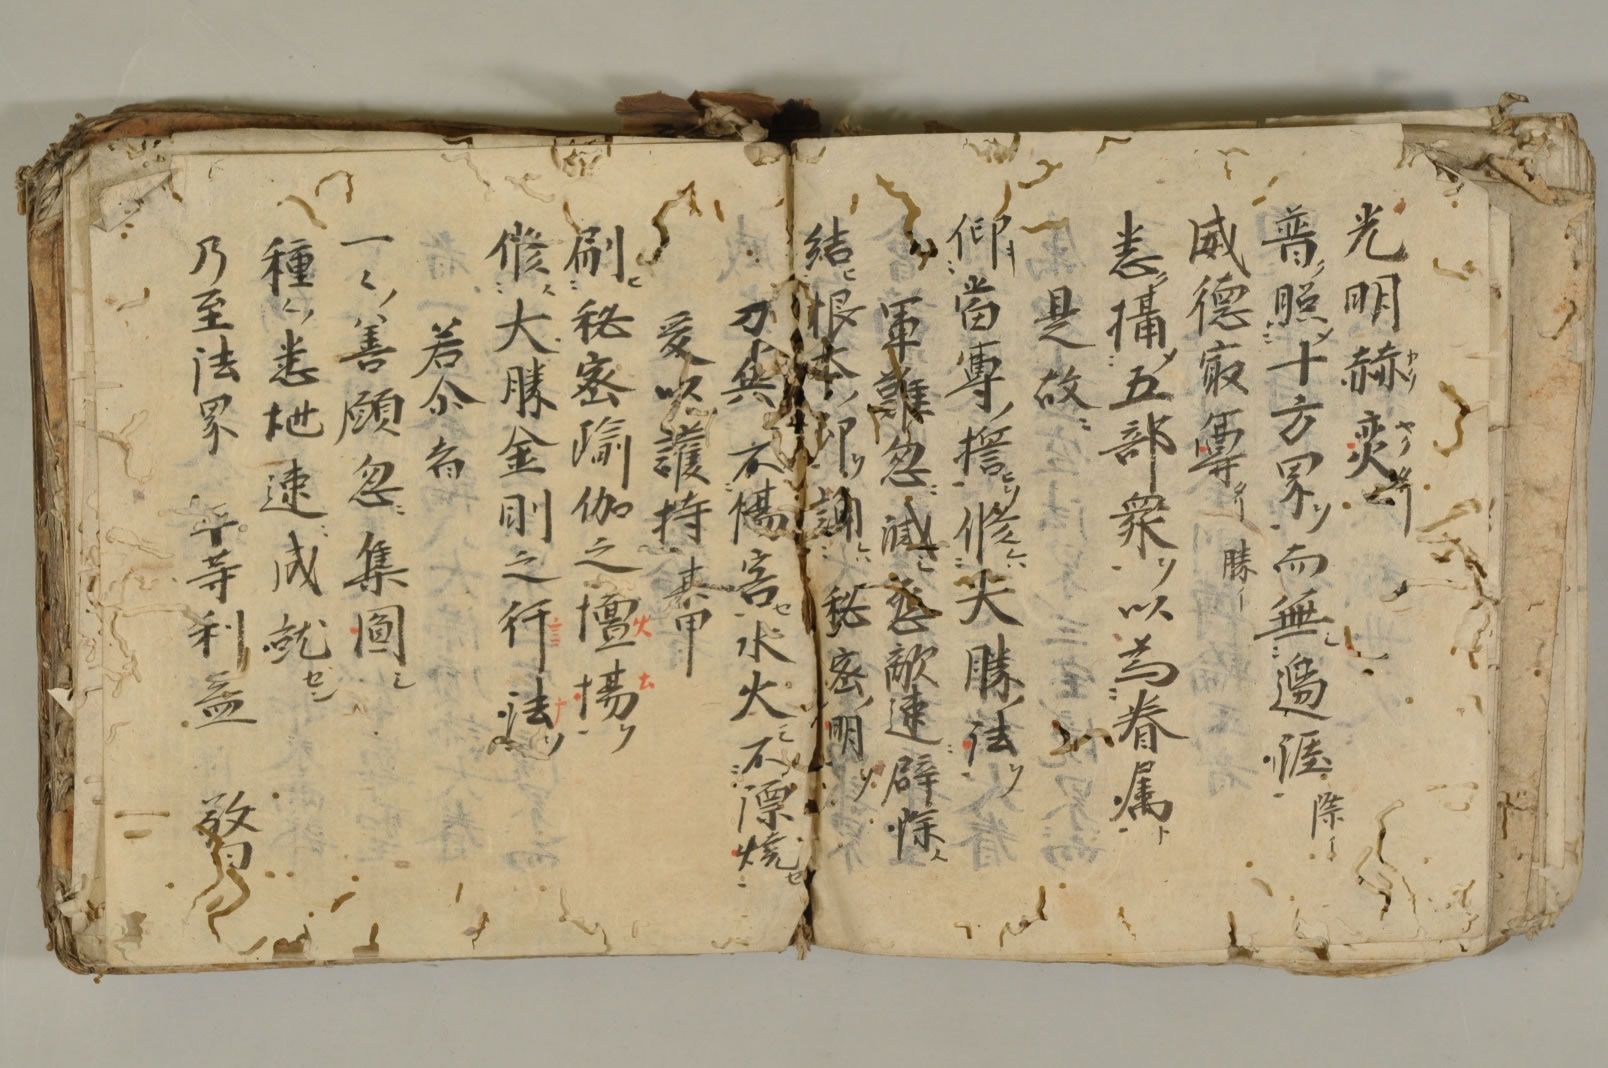 光明赫奕
普照十方界而無邊涯際
威德最尊勝
悉攝五部衆以為眷属
是故
仰當專修法勝
軍難忽滅怨敵速辟除
結根本印誦秘密明
刀兵不傷害水火不漂焼
爰以護持某甲
刷秘密瑜伽之壇場
修大勝金剛之行法
若尒者
一々善願忽集圓
種々悉地速成就
乃至法界平等利益 敬白